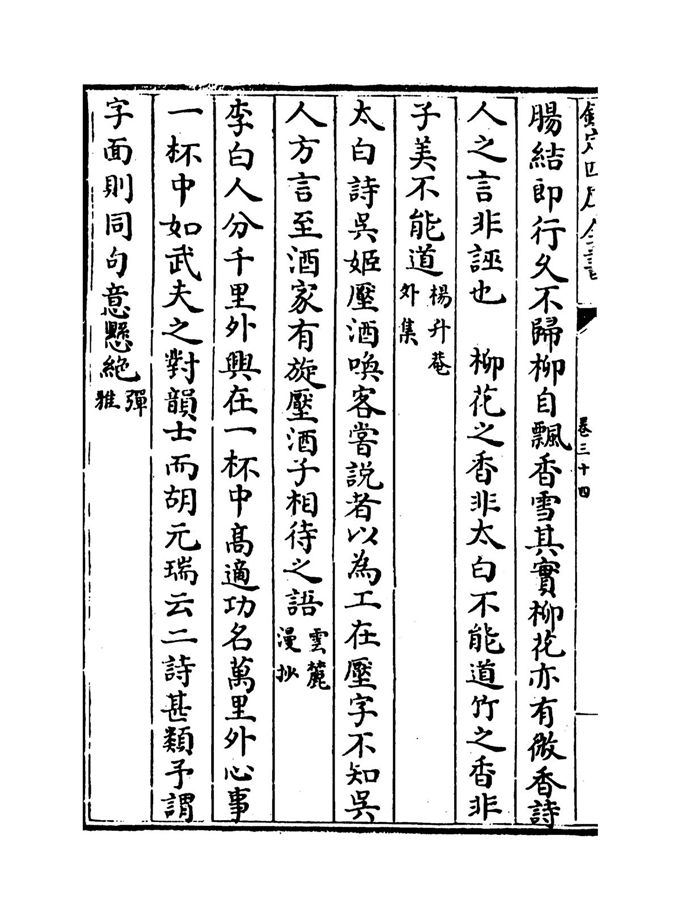 欽定四庫全書
卷三十四
腸結即行久不歸柳自飄香雪其實柳花亦有微香詩
人之言非誣也　柳花之香非太白不能道竹之香非
子美不能道楊升菴外集
太白詩吳姬壓酒喚客嘗説者以為工在壓字不知吳
人方言至酒家有旋壓酒子相待之語雲麓漫抄
李白人分千里外興在一杯中高適功名萬里外心事
一杯中如武夫之對韻士而胡元瑞云二詩甚類予謂
字面則同句意懸絶彈雅